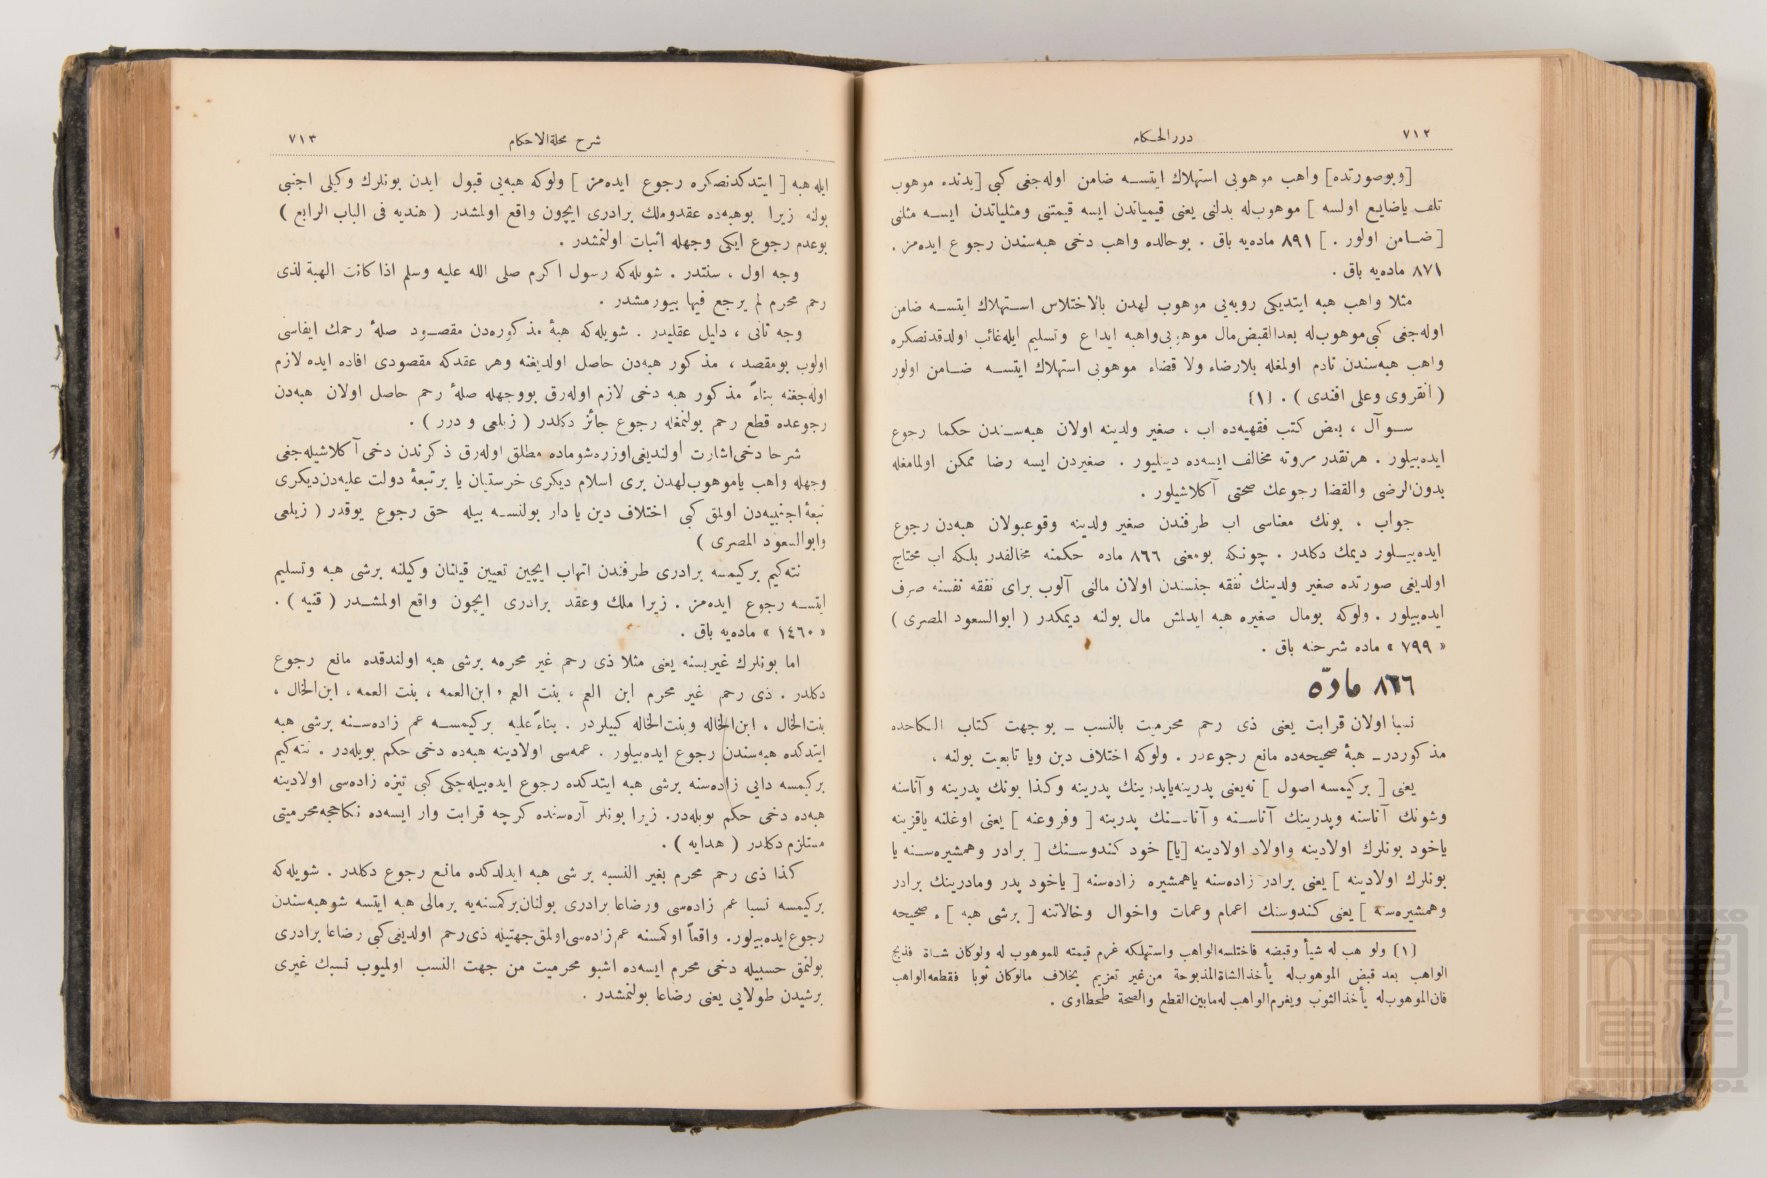 ٧١٢
دررالحكام
[وبوصورتده] واهب موهوبی استهلاك ایتسه ضامن اوله‌جغی كبی [یدنده موهوب
تلف یاضایع اولسه] موهوب‌له بدلنی یعنی قیمیاتدن ایسه قیمتنی ومثلیاتدن ایسه مثلنی
[ضامن اولور .] ٨٩١ ماده‌یه باق . بوحالده واهب دخی هبه‌سندن رجوع ایده‌مز .
٨٧١ ماده‌یه باق .
مثلا واهب هبه ایتدیكی روبه‌یی موهوب لهدن بالاختلاس استهلاك ایتسه ضامن
اوله‌جغی كبی موهوب‌له بعدالقبض مال موهوبی واهبه ایداع وتسلیم ایله غائب اولدقدنصكره
واهب هبه‌سندن نادم اولمغله بلارضاء ولا قضاء موهوبی استهلاك ایتسه ضامن اولور
(انقروی وعلی افندی) . {١}
سوآل ، بعض كتب فقهیه‌ده اب ، صغیر ولدینه اولان هبه‌سندن حكما رجوع
ایده‌بیلور . هرنقدر مروته مخالف ایسه‌ده دینلیور . صغیردن ایسه رضا ممكن اولمامغله
بدون‌الرضی والقضا رجوعك صحتی آكلاشیلور .
جواب ، بونك معناسی اب طرفندن صغیر ولدینه وقوعبولان هبه‌دن رجوع
ایده‌بیلور دیمك دكلدر . چونكه بومعنی ٨٦٦ ماده حكمنه مخالفدر بلكه اب محتاج
اولدیغی صورتده صغیر ولدینك نفقه جنسندن اولان مالنی آلوب برای نفقه نفسنه صرف
ایده‌بیلور . ولوكه بومال صغیره هبه ایدلمش مال بولنه دیمكدر (ابوالسعود المصری)
«٧٩٩» ماده شرحنه باق .
٨٦٦ مادّه
نسبا اولان قرابت یعنی ذی رحم محرمیت بالنسب ــ بو جهت كتاب النكاحده
مذكوردر ــ هبهٔ صحیحه‌ده مانع رجوعدر . ولوكه اختلاف دین ویا تابعیت بولنه ،
یعنی [بركیمسه اصول] نه‌یعنی پدرینه‌یاپدرینك پدرینه وكذا بونك پدرینه وآناسنه
وشونك آناسنه وپدرینك آناسنه وآناسنك پدرینه [وفروعنه] یعنی اوغلنه یاقزینه
یاخود بونلرك اولادینه واولاد اولادینه [یا] خود كندوسنك [برادر وهمشیره‌سنه یا
بونلرك اولادینه] یعنی برادر زاده‌سنه یاهمشیره زاده‌سنه [یاخود پدر ومادرینك برادر
وهمشیره‌سنه] یعنی كندوسنك اعمام وعمات واخوال وخالاتنه [برشی هبه] ء صحیحه
(١) ولو هب له شیأ وقبضه فاختلسه‌الواهب واستهلكه غرم قیمته للموهوب له ولوكان شاة فذبح
الواهب بعد قبض الموهوب‌له یأخذالشاةالمذبوحة من‌غیر تعزیم بخلاف مالوكان ثوبا فقطعه‌الواهب
فان‌الموهوب‌له یأخذالثوب ویغرم‌الواهب له‌مابین‌القطع والصحة طحطاوی .
شرح مجلةالاحكام
٧١٣
ایله هبه [ایتدكدنصكره رجوع ایده‌مز] ولوكه هبه‌یی قبول ایدن بونلرك وكیلی اجنبی
بولنه زیرا بوهبه‌ده عقدوملك برادری ایچون واقع اولمشدر (هندیه فی الباب الرابع)
بوعدم رجوع ایكی وجهله اثبات اولنمشدر .
وجه اول ، سنتدر . شویله‌كه رسول اكرم صلی الله علیه وسلم اذا كانت الهبة لذی
رحم محرم لم یرجع فیها بیورمشدر .
وجه ثانی ، دلیل عقلیدر . شویله‌كه هبهٔ مذكوره‌دن مقصود صلهٔ رحمك ایفاسی
اولوب بومقصد ، مذكور هبه‌دن حاصل اولدیغنه وهر عقدكه مقصودی افاده ایده لازم
اوله‌جغنه بناءً مذكور هبه دخی لازم اوله‌رق بووجهله صلهٔ رحم حاصل اولان هبه‌دن
رجوعده قطع رحم بولنمغله رجوع جائز دكلدر (زیلعی و درر) .
شرحا دخی اشارت اولندیغی اوزره شوماده مطلق اوله‌رق ذكرندن دخی آكلاشیله‌جغی
وجهله واهب یاموهوب‌لهدن بری اسلام دیكری خرستیان یا برتبعهٔ دولت علیه‌دن دیكری
تبعهٔ اجنبیه‌دن اولمق كبی اختلاف دین یا دار بولنسه بیله حق رجوع یوقدر (زیلعی
وابوالسعود المصری)
نته‌كیم بركیمسه برادری طرفندن اتهاب ایچین تعیین قیلنان وكیلنه برشی هبه وتسلیم
ایتسه رجوع ایده‌مز . زیرا ملك وعقد برادری ایچون واقع اولمشدر (قنیه) .
«١٤٦٠» ماده‌یه باق .
اما بونلرك غیریسنه یعنی مثلا ذی رحم غیر محرمه برشی هبه اولندقده مانع رجوع
دكلدر . ذی رحم غیر محرم ابن العم ، بنت العم ، ابن‌العمه ، بنت العمه ، ابن‌الخال ،
بنت‌الخال ، ابن‌الخاله وبنت‌الخاله كبیلردر . بناءً‌علیه بركیمسه عم زاده‌سنه برشی هبه
ایتدكده هبه‌سندن رجوع ایده‌بیلور . عمه‌سی اولادینه هبه‌ده دخی حكم بویله‌در . نته‌كیم
بركیمسه دایی زاده‌سنه برشی هبه ایتدكده رجوع ایده‌بیله‌جكی كبی تیزه زاده‌سی اولادینه
هبه‌ده دخی حكم بویله‌در. زیرا بونلر آره‌سنده كرچه قرابت وار ایسه‌ده نكاحجه محرمیتی
مستلزم دكلدر (هدایه) .
كذا ذی رحم محرم بغیر النسبه بر شی هبه ایدلدكده مانع رجوع دكلدر . شویله‌كه
بركیمسه نسبا عم زاده‌سی ورضاعا برادری بولنان بركسنه‌یه برمالی هبه ایتسه شوهبه‌سندن
رجوع ایده‌بیلور. واقعاً اوكمسنه عم زاده‌سی اولمق جهتیله ذی رحم اولدیغی كبی رضاعا برادری
بولنمق حسبیله دخی محرم ایسه‌ده اشبو محرمیت من جهت النسب اولمیوب نسبك غیری
برشیدن طولایی یعنی رضاعا بولنمشدر .
TOYO BUNKO